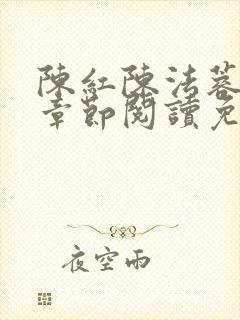 陳紅陳法蓉
章節閱讀免
夜空雨